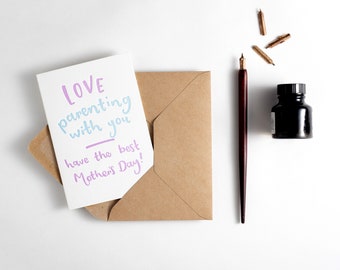 LOVE
parenting
with you
have the best
Mother's Day!